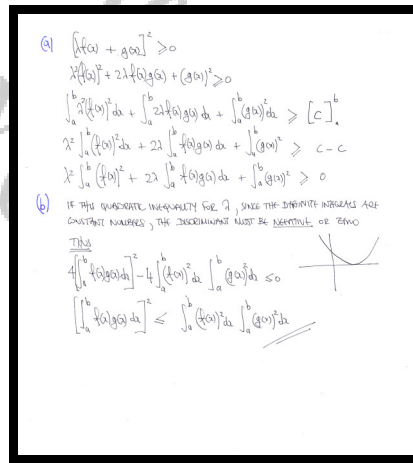 (a) [λf(x) + g(x)]² ⩾ 0
λ²(f(x))² + 2λf(x)g(x) + (g(x))² ⩾ 0
∫ₐᵇ λ²(f(x))² dx + ∫ₐᵇ 2λf(x)g(x) dx + ∫ₐᵇ (g(x))² dx ⩾ [C]ₐᵇ
λ² ∫ₐᵇ (f(x))² dx + 2λ ∫ₐᵇ f(x)g(x) dx + ∫ₐᵇ (g(x))² ⩾ C - C
λ² ∫ₐᵇ (f(x))² + 2λ ∫ₐᵇ f(x)g(x) dx + ∫ₐᵇ (g(x))² ⩾ 0
(b) IF THIS QUADRATIC INEQUALITY FOR λ, SINCE THE DEFINITE INTEGRALS ARE
CONSTANT NUMBERS, THE DISCRIMINANT MUST BE NEGATIVE OR ZERO
THUS
4[∫ₐᵇ f(x)g(x) dx]² - 4 ∫ₐᵇ (f(x))² dx ∫ₐᵇ (g(x))² dx ⩽ 0
[∫ₐᵇ f(x)g(x) dx]² ⩽ ∫ₐᵇ (f(x))² dx ∫ₐᵇ (g(x))² dx